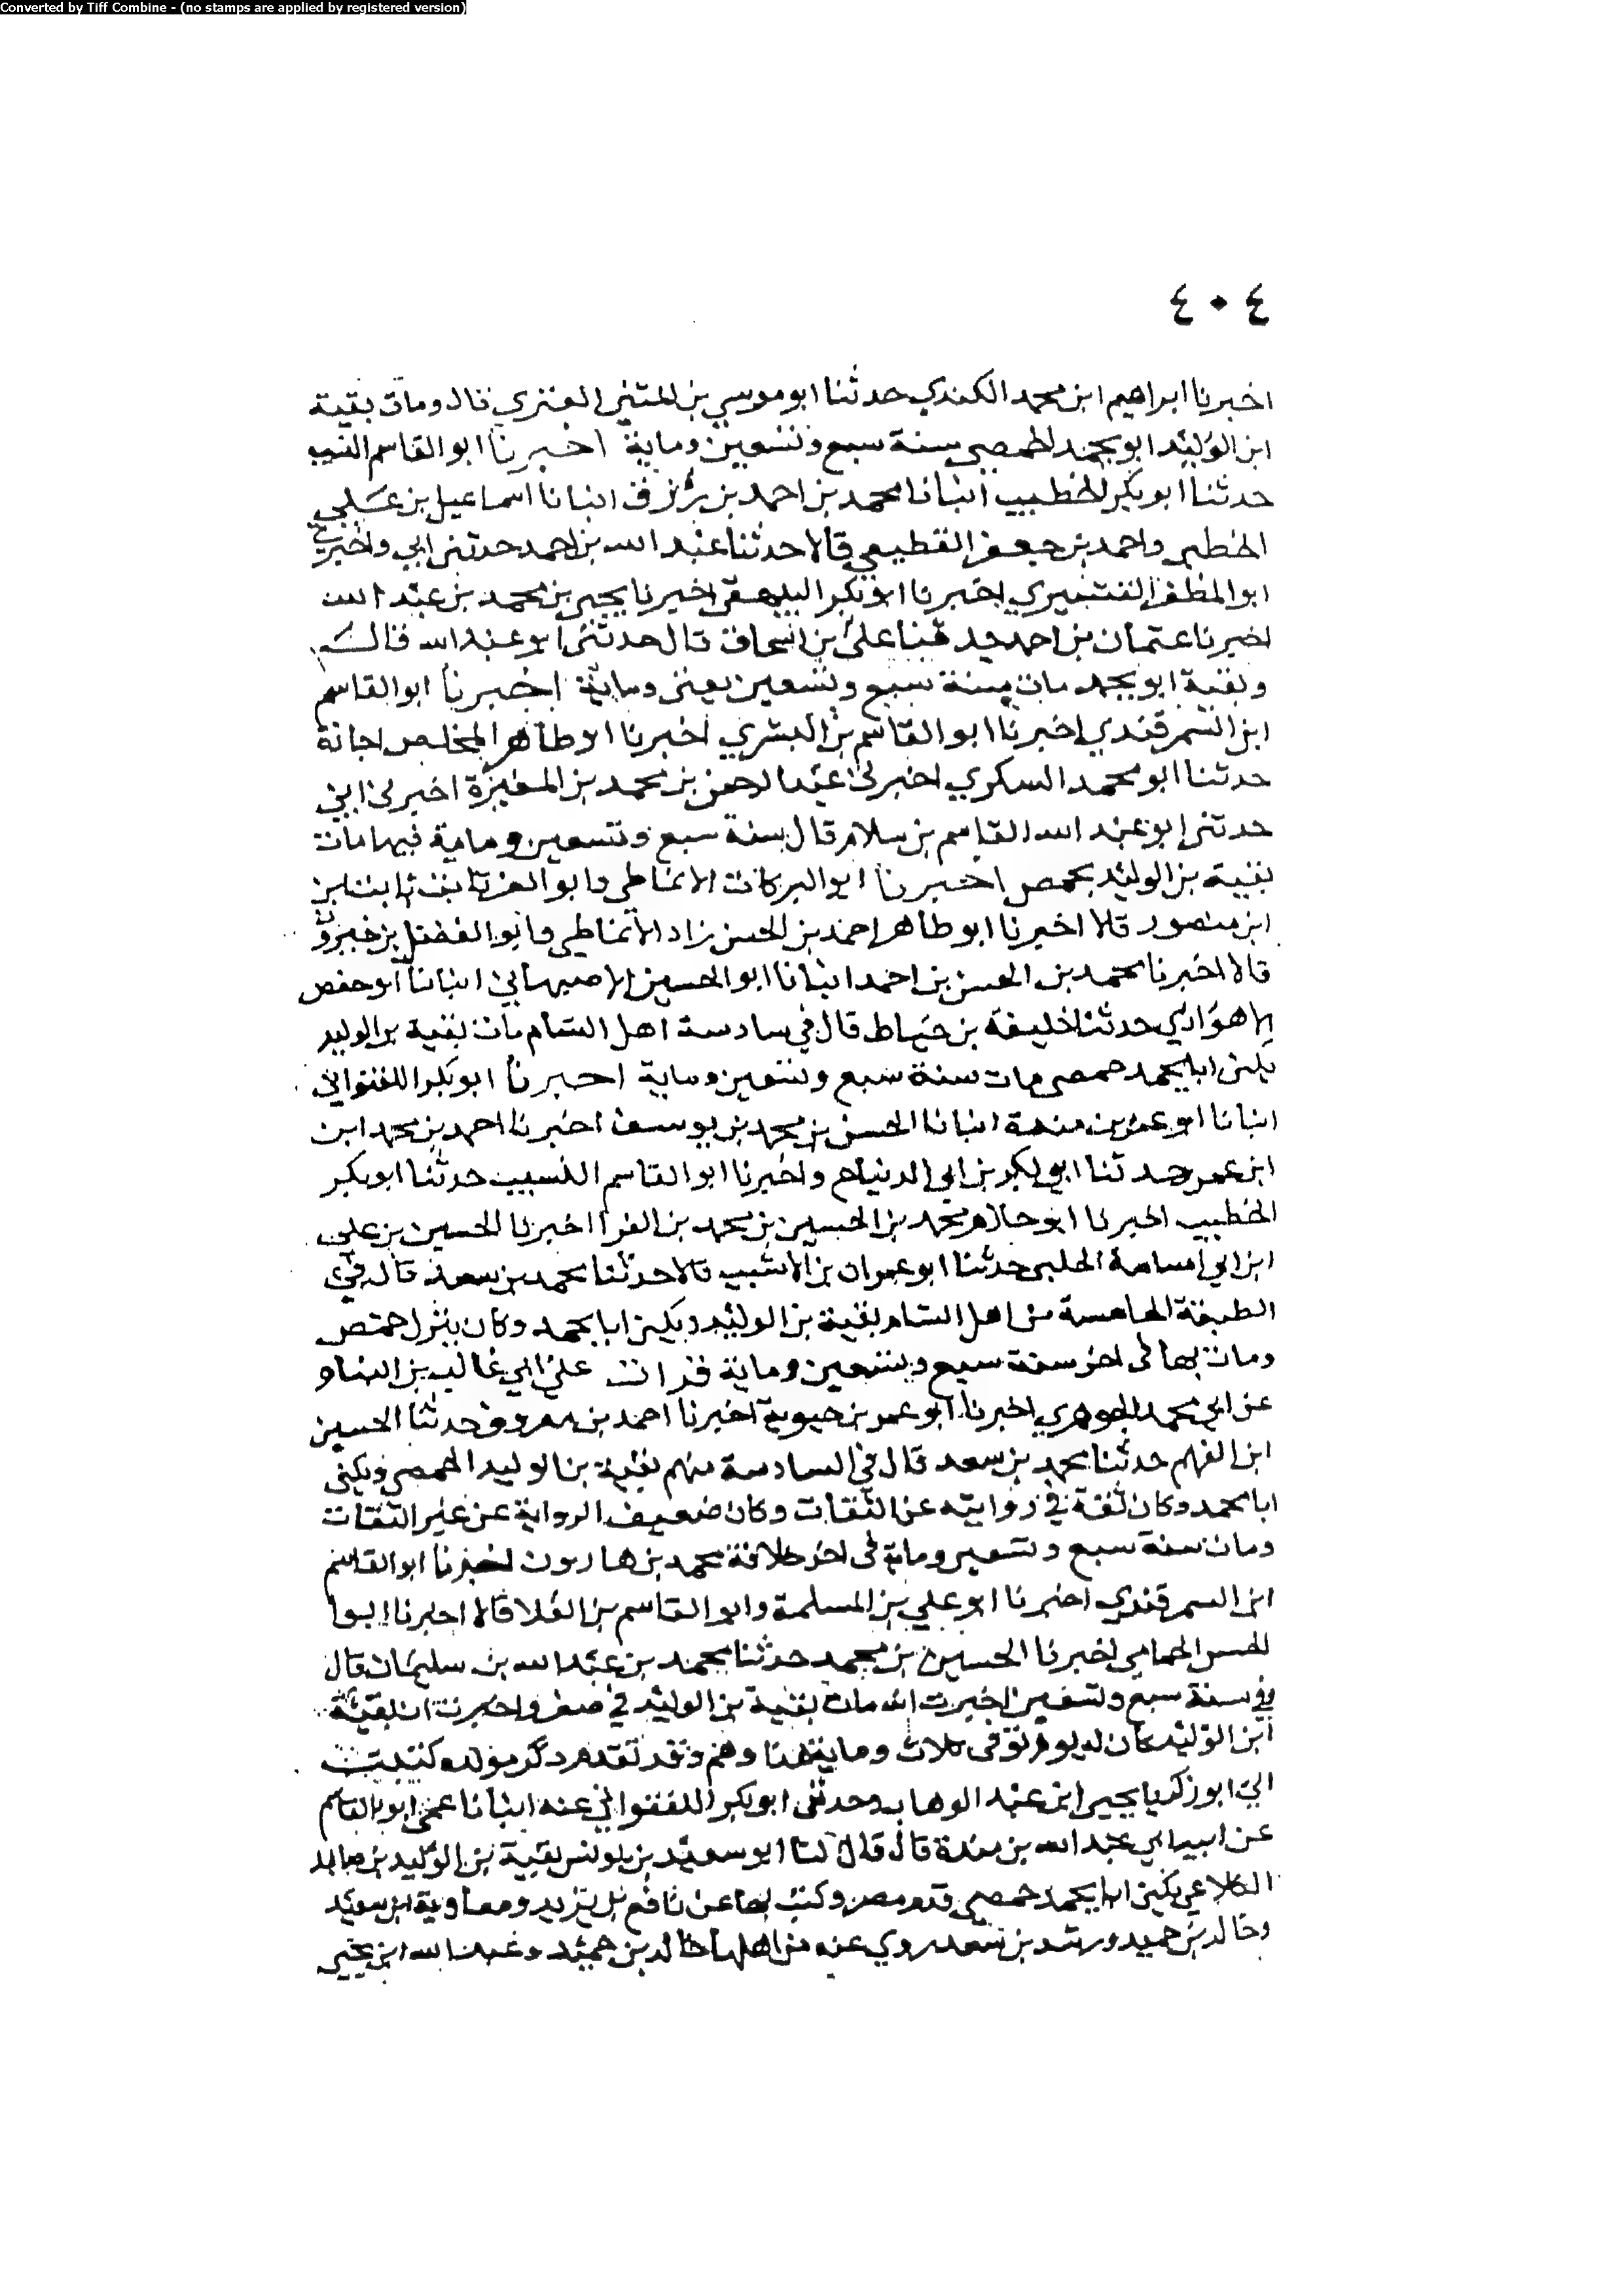 Converted by Tiff Combine - (no stamps are applied by registered version)
٤٠٤
اخبرنا ابراهيم ابن محمد الكندي حدثنا ابو موسي بن المثني العنزي قال ومات بقية
ابن الوليد ابو محمد الحمصي سنة سبع وتسعين وماية اخبرنا ابو القاسم النسيب
حدثنا ابو بكر الخطيب انبانا محمد بن احمد بن رزق انبانا اسماعيل بن علي
الخطبي واحمد بن جعفر القطيعي قالا حدثنا عبد الله بن احمد حدثني ابي واخبرنا
ابو المظفر القشيري اخبرنا ابو بكر البيهقي اخبرنا يحيى بن محمد بن عبد الله
اخبرنا عثمان بن احمد حدثنا علي بن اسحاق قال حدثني ابو عبد الله قال
وبقية ابو محمد مات سنة سبع وتسعين يعني وماية اخبرنا ابو القاسم
ابن السمرقندي اخبرنا ابو القاسم بن البسري اخبرنا ابو طاهر المخلص اجازة
حدثنا ابو محمد السكري اخبرني عبد الرحمن بن محمد بن المغيرة اخبرني ابي
حدثني ابو عبد الله القاسم بن سلام قال سنة سبع وتسعين وماية فيها مات
بقية بن الوليد بحمص اخبرنا ابو البركات الانماطي وابو العز ثابت بن
ابن منصور قالا اخبرنا ابو طاهر احمد بن الحسن زاد الانماطي وابو الفضل بن خيرون
قالا اخبرنا محمد بن الحسن بن احمد انبانا ابو الحسين الاصبهاني انبانا ابو حفص
الاهوازي حدثنا خليفة بن خياط قال في سادسة اهل الشام مات بقية بن الوليد
يكنى ابا محمد حمصي مات سنة سبع وتسعين وماية اخبرنا ابو بكر اللفتواني
انبانا ابو عمرو بن مندة انبانا الحسن بن محمد بن يوسف اخبرنا احمد بن محمد ابن
ابن عمر حدثنا ابو بكر بن ابي الدنيا ح واخبرنا ابو القاسم النسيب حدثنا ابو بكر
الخطيب اخبرنا ابو حازم محمد بن الحسين بن محمد بن الفرا اخبرنا الحسين بن علي
ابن ابي اسامة الحلبي حدثنا ابو عمران بن الاشيب قالا حدثنا محمد بن سعد قال في
الطبقة الخامسة من اهل الشام بقية بن الوليد ويكنى ابا محمد وكان ينزل حمص
ومات بها في اخر سنة سبع وتسعين وماية قرات على ابي غالب بن البنا و
عن ابي محمد الجوهري اخبرنا ابو عمر بن حيوية اخبرنا احمد بن معروف حدثنا الحسين
ابن الفهم حدثنا محمد بن سعد قال في السادسة منهم بقية بن الوليد الحمصي ويكنى
ابا محمد وكان ثقة في روايته عن الثقات وكان ضعيف الرواية عن غير الثقات
ومات سنة سبع وتسعين وماية في اخر خلافة محمد بن هارون اخبرنا ابو القاسم
ابن السمرقندي اخبرنا ابو علي بن المسلمة وابو القاسم بن العلا قالا اخبرنا ابو ا
لحسن الحمامي اخبرنا الحسين بن محمد حدثنا محمد بن عبد الله بن سليمان قال
في سنة سبع وتسعين اخبرت انه مات بقية بن الوليد في صفر واخبرت ان بقية
ابن الوليد كان له يوم توفي ثلاث وماية هذا وهم وقد تقدم ذكر مولده كتب
الي ابو زكريا يحيى ابن عبد الوهاب وحدثني ابو بكر اللفتواني عنه انبانا عمي ابو القاسم
عن ابيه ابي عبد الله بن مندة قال قال لنا ابو سعيد بن يونس بقية بن الوليد بن صايد
الكلاعي يكنى ابا محمد حمصي قدم مصر وكتب بها عن نافع بن يزيد ومعاوية ابن سعيد
وخالد بن حميد ورشد بن سعد روي عنه من اهلها خالد بن حميد وعبد الله ابن يحيى